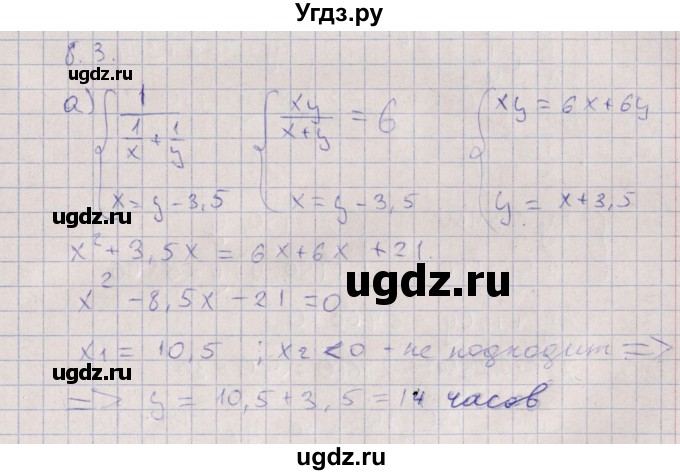 Угдз.ру
8.3.
ugdz.ru
а) { 1 / (1/x + 1/y) { xy / (x+y) = 6 { xy = 6x+6y
ugdz.ru
x = y - 3,5 x = y - 3,5 y = x+3,5
ugdz.ru
x² + 3,5x = 6x+6x +21.
ugdz.ru
x² - 8,5x - 21 = 0
ugdz.ru
x1 = 10,5 ; x2 < 0 - не подходит =>
ugdz.ru
=> y = 10,5+3,5 = 14 часов
ugdz.ru
Угдз.ру